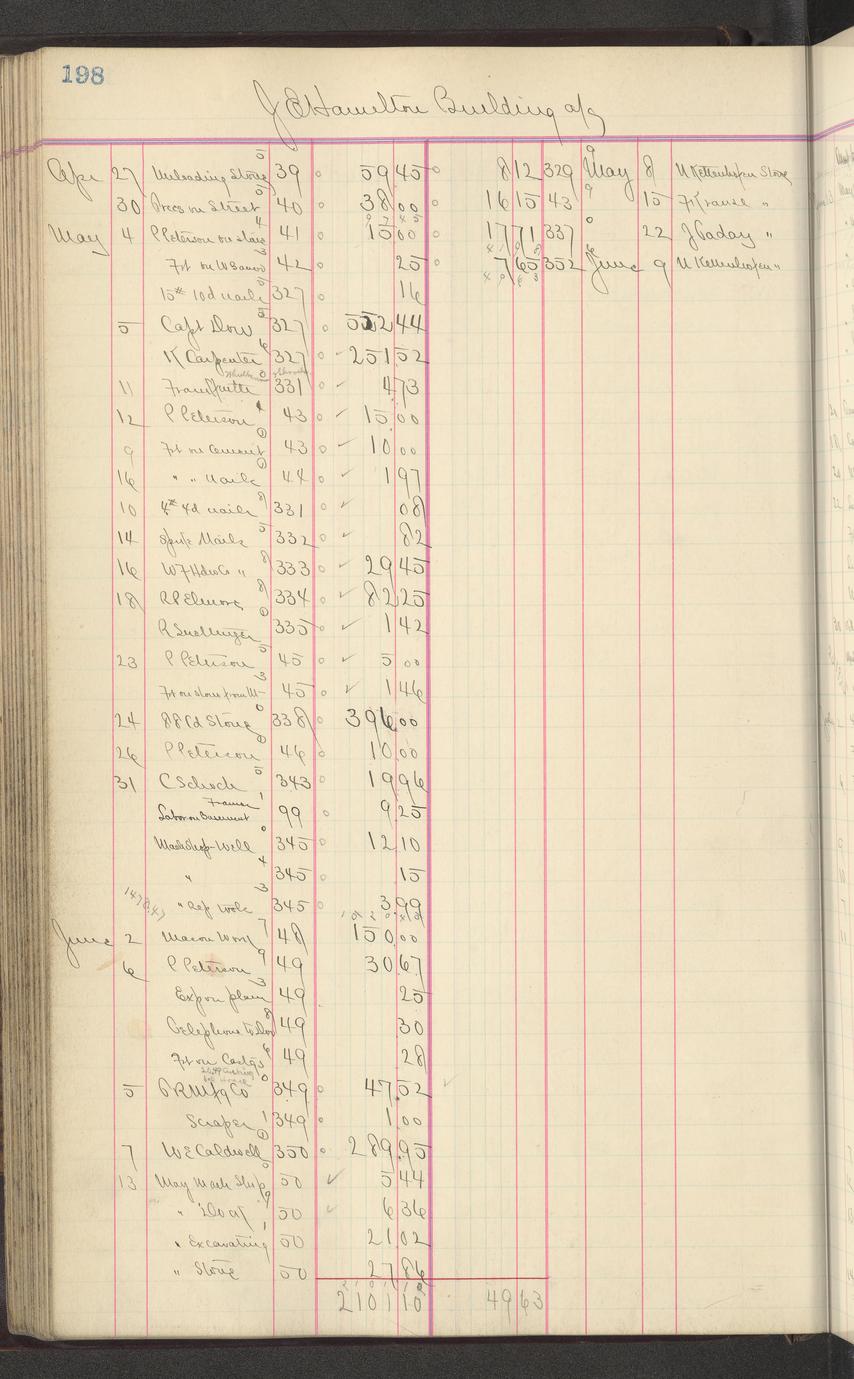 198
J E Hamilton Building a/c
Apr 27 Unloading Stone 39 59 45 8 12 329 May 8 N Kettenhofen Stone
30 on Street 40 38 00 16 15 43 15 F Krause "
May 4 P Peterson on stone 41 15 00 17 71 337 22 J Gaday "
Frt on W 42 25 7 65 352 June 9 N Kettenhofen "
15# 10d nails 327 16
5 Capt Dow 327 552 44
K Carpenter 327 251 52
11 331 4 73
12 P Peterson 43 15 00
9 Frt on Cement 43 10 00
16 " " Nails 44 1 97
10 4# 4d nails 331 08
14 Spike Nails 332 82
16 W F Hdw Co " 333 29 45
18 R P Elmore 334 82 25
R Suettinger 335 1 42
23 P Peterson 45 5 00
Frt on stone from M- 45 1 46
24 88 Cd Stone 338 396 00
26 P Peterson 46 10 00
31 C Schoch 343 19 96
Labor on Basement 99 9 25
Mach Shop - Well 345 12 10
" 345 15
" Rep tools 345 3 99
June 2 Mason Work 48 150 00
6 P Peterson 49 30 67
Exp on plans 49 25
Telephone to Dow 49 30
Frt on Castgs 49 28
5 P R Mfg Co 349 47 52
Scraper 349 1 00
7 W E Caldwell 350 289 95
13 May Mach Shop 50 5 44
" " 50 6 36
" Excavating 50 21 02
" Stone 50 27 86
2101 10 49 63